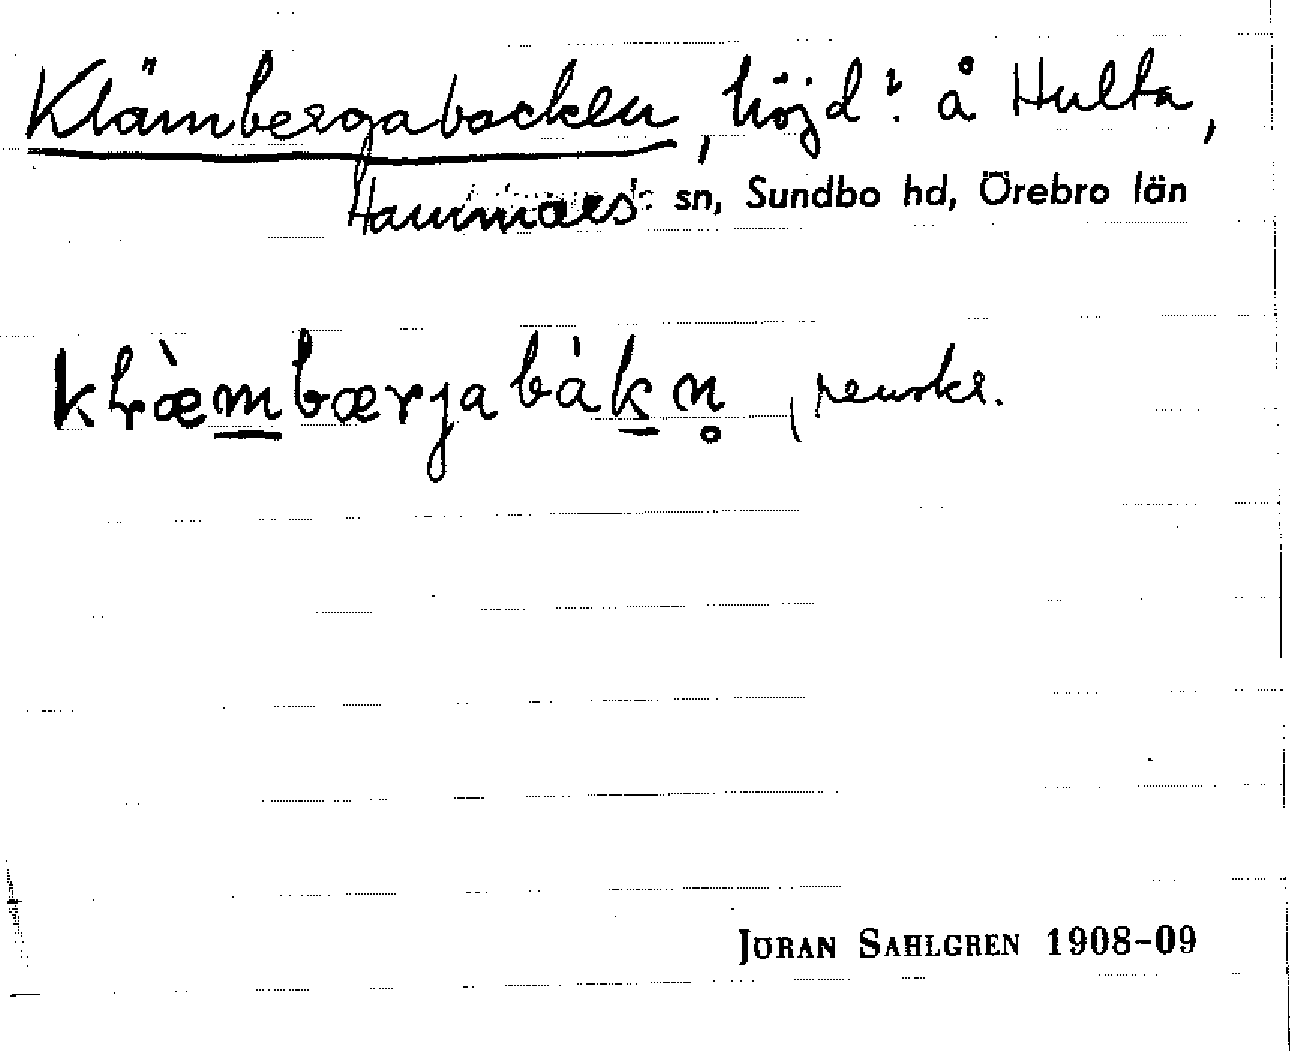 Klämbergabacken, höjd? å Hulta,
Hammars sn, Sundbo hd, Örebro län
kḷræ̀mbærgabákn̥, renskr.
JÖRAN SAHLGREN 1908-09